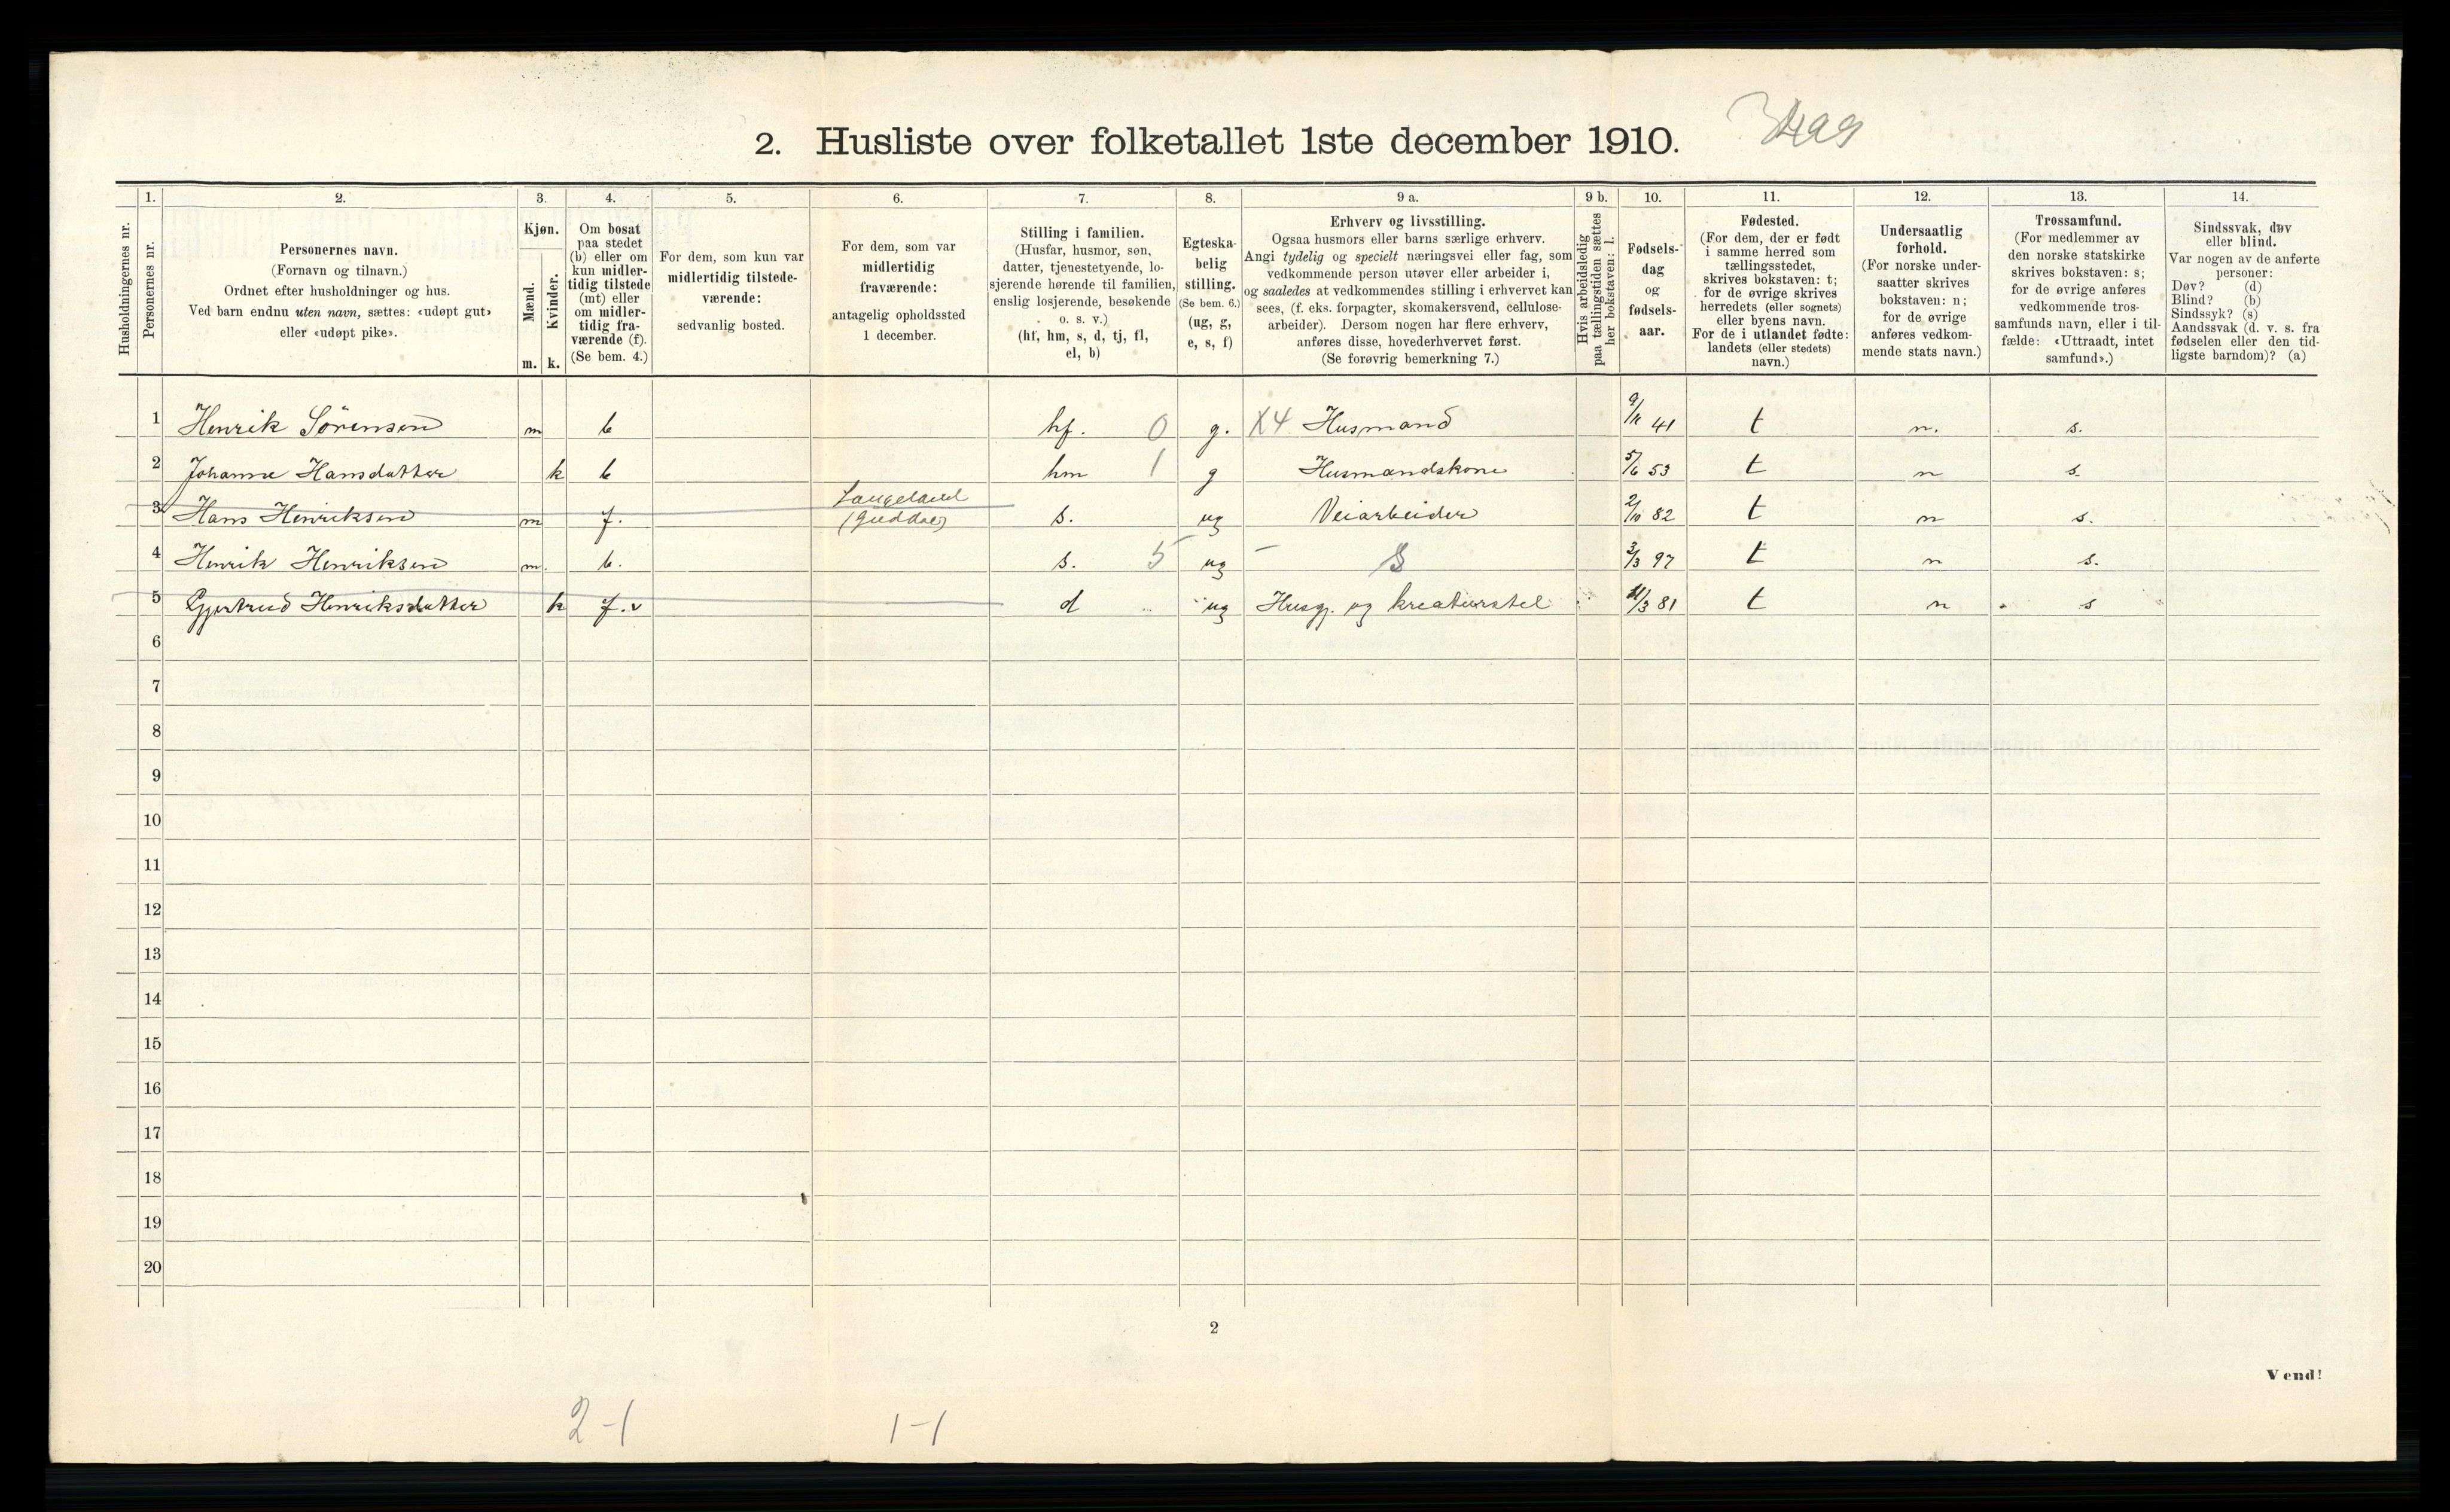 2. Husliste over folketallet 1ste december 1910.
Husholdningernes nr.
1.
Personernes nr.
2.
Personernes navn.
(Fornavn og tilnavn.)
Ordnet efter husholdninger og hus.
Ved barn endnu uten navn, sættes: «udøpt gut»
eller «udøpt pike».
3.
Kjøn.
Mænd.
Kvinder.
m. k.
4.
Om bosat
paa stedet
(b) eller om
kun midler-
tidig tilstede
(mt) eller
om midler-
tidig fra-
værende (f).
(Se bem. 4.)
5.
For dem, som kun var
midlertidig tilstede-
værende:
sedvanlig bosted.
6.
For dem, som var
midlertidig
fraværende:
antagelig opholdssted
1 december.
7.
Stilling i familien.
(Husfar, husmor, søn,
datter, tjenestetyende, lo-
sjerende hørende til familien,
enslig losjerende, besøkende
o. s. v.)
(hf, hm, s, d, tj, fl,
el, b)
8.
Egteska-
belig
stilling.
(Se bem. 6.)
(ug, g,
e, s, f)
9 a.
Erhverv og livsstilling.
Ogsaa husmors eller barns særlige erhverv.
Angi tydelig og specielt næringsvei eller fag, som
vedkommende person utøver eller arbeider i,
og saaledes at vedkommendes stilling i erhvervet kan
sees, (f. eks. forpagter, skomakersvend, cellulose-
arbeider). Dersom nogen har flere erhverv,
anføres disse, hovederhvervet først.
(Se forøvrig bemerkning 7.)
9 b.
Hvis arbeidsledig
paa tællingstiden sættes
her bokstaven: l.
10.
Fødsels-
dag
og
fødsels-
aar.
11.
Fødested.
(For dem, der er født
i samme herred som
tællingsstedet,
skrives bokstaven: t;
for de øvrige skrives
herredets (eller sognets)
eller byens navn.
For de i utlandet fødte:
landets (eller stedets)
navn.)
12.
Undersaatlig
forhold.
(For norske under-
saatter skrives
bokstaven: n;
for de øvrige
anføres vedkom-
mende stats navn.)
13.
Trossamfund.
(For medlemmer av
den norske statskirke
skrives bokstaven: s;
for de øvrige anføres
vedkommende tros-
samfunds navn, eller i til-
fælde: «Uttraadt, intet
samfund».)
14.
Sindssvak, døv
eller blind.
Var nogen av de anførte
personer:
Døv? (d)
Blind? (b)
Sindssyk? (s)
Aandssvak (d. v. s. fra
fødselen eller den tid-
ligste barndom)? (a)
1 Henrik Sörensen m b hf. 0 g. X4 Husmand 9/11 41 t n. s.
2 Johanne Hansdatter k b hm 1 g Husmandskone 5/6 53 t n s.
3 Hans Henriksen m f. Langeland (Guddal) s. ug Veiarbeider 2/10 82 t n s.
4 Henrik Henriksen m. b. s. 5 ug – S 3/3 97 t n s.
5 Gjertrud Henriksdatter k f. v d ug Husgj. og kreaturstel 11/3 81 t n s
6
7
8
9
10
11
12
13
14
15
16
17
18
19
20
2
Vend!
2-1
1-1